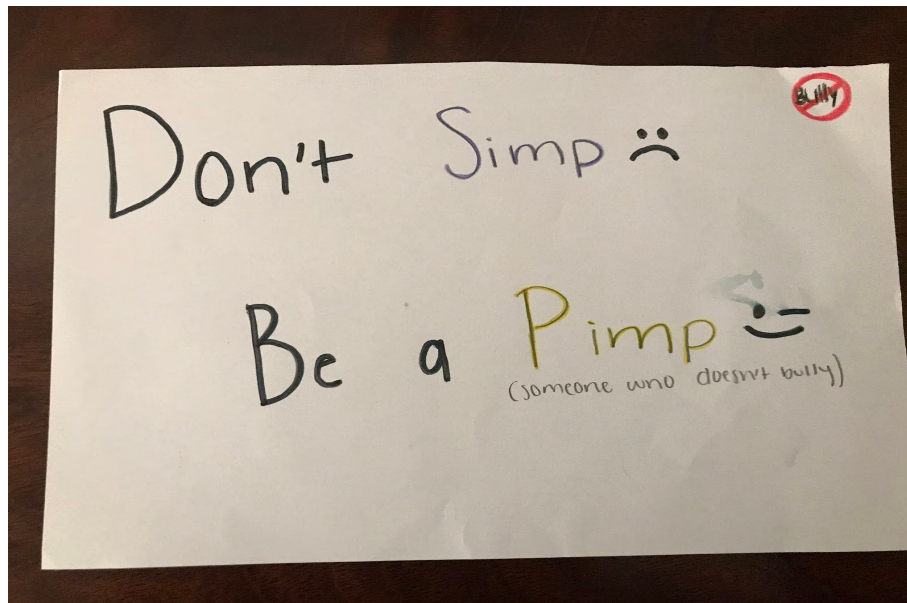 BULLY
Don't Simp
Be a Pimp
(someone who doesn't bully)